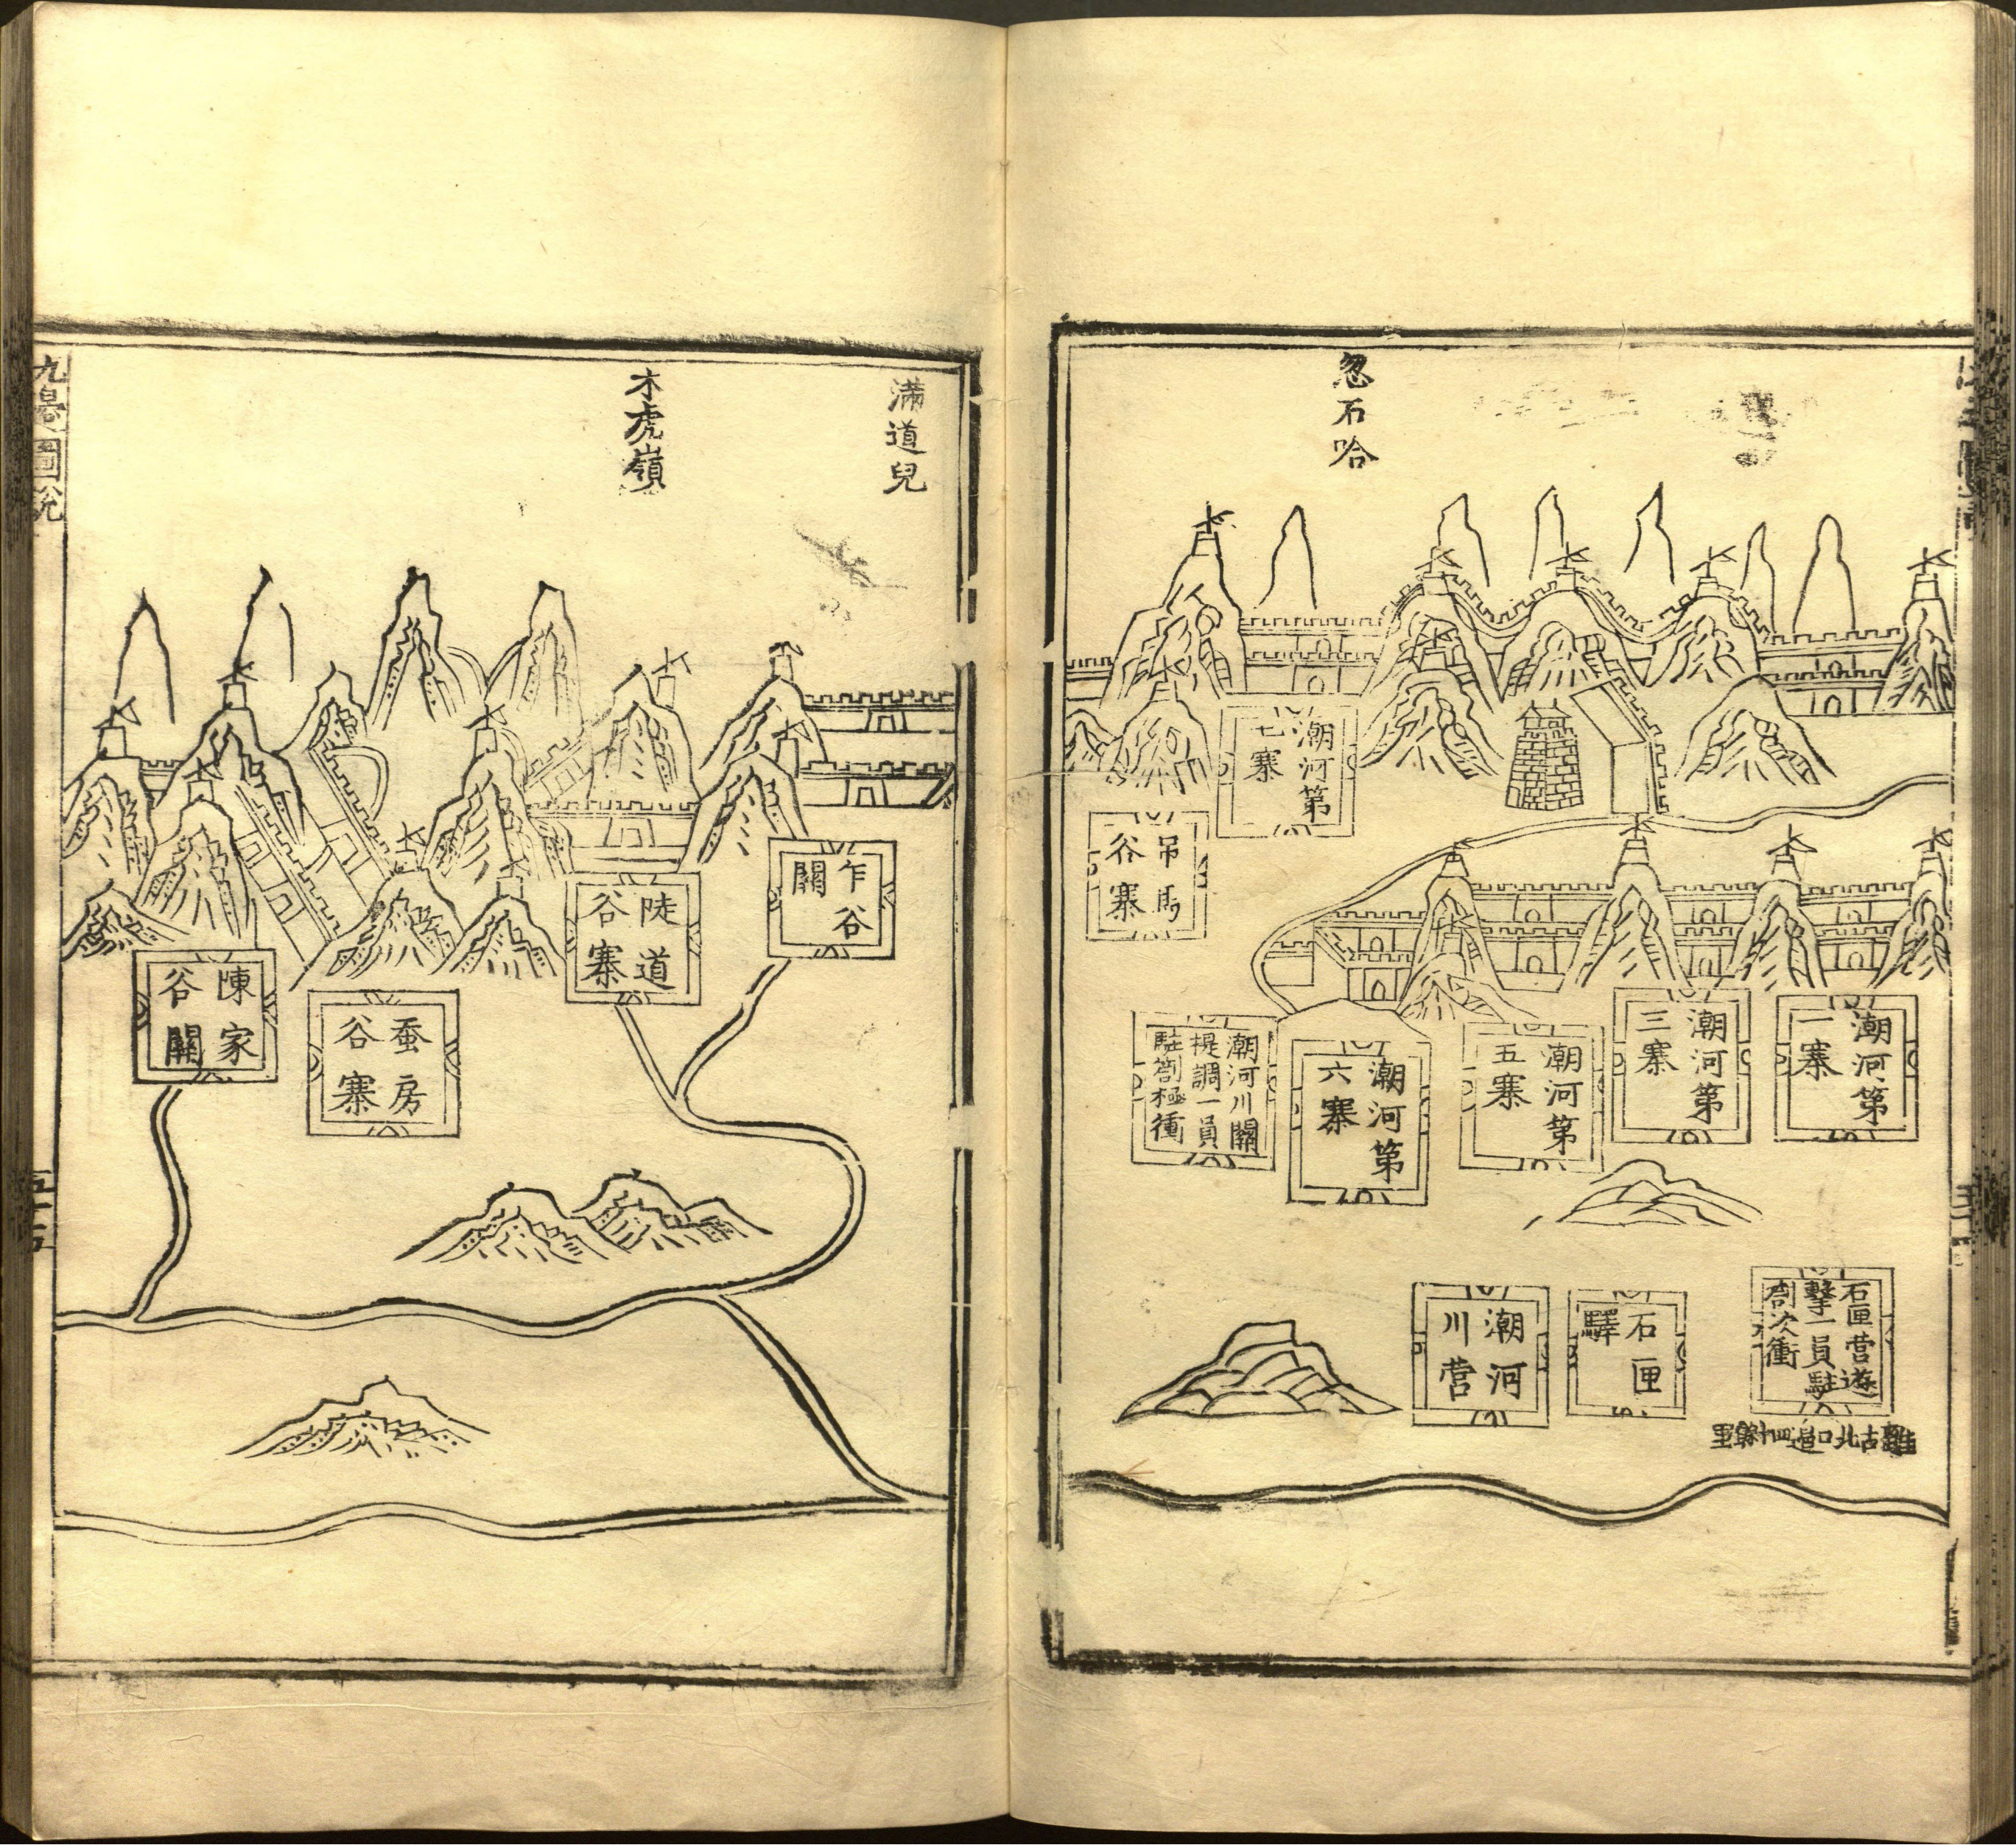 忽石哈
潮河第
七寨
吊馬
谷寨
潮河第
一寨
潮河第
三寨
潮河第
五寨
潮河第
六寨
潮河川關
提調一員
駐劄極衝
石匣营遊
擊一員駐
劄次衝
離古北口邊四十餘里
石匣
驛
潮河
川营
滿道兒
木虎嶺
乍谷
關
陡道
谷寨
蚕房
谷寨
陳家
谷關
九邉圖說